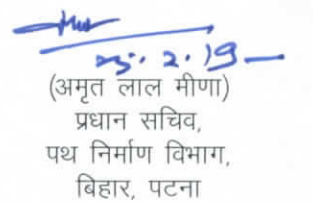 2.19
(अमृत लाल मीणा)
प्रधान सचिव,
पथ निर्माण विभाग,
बिहार, पटना